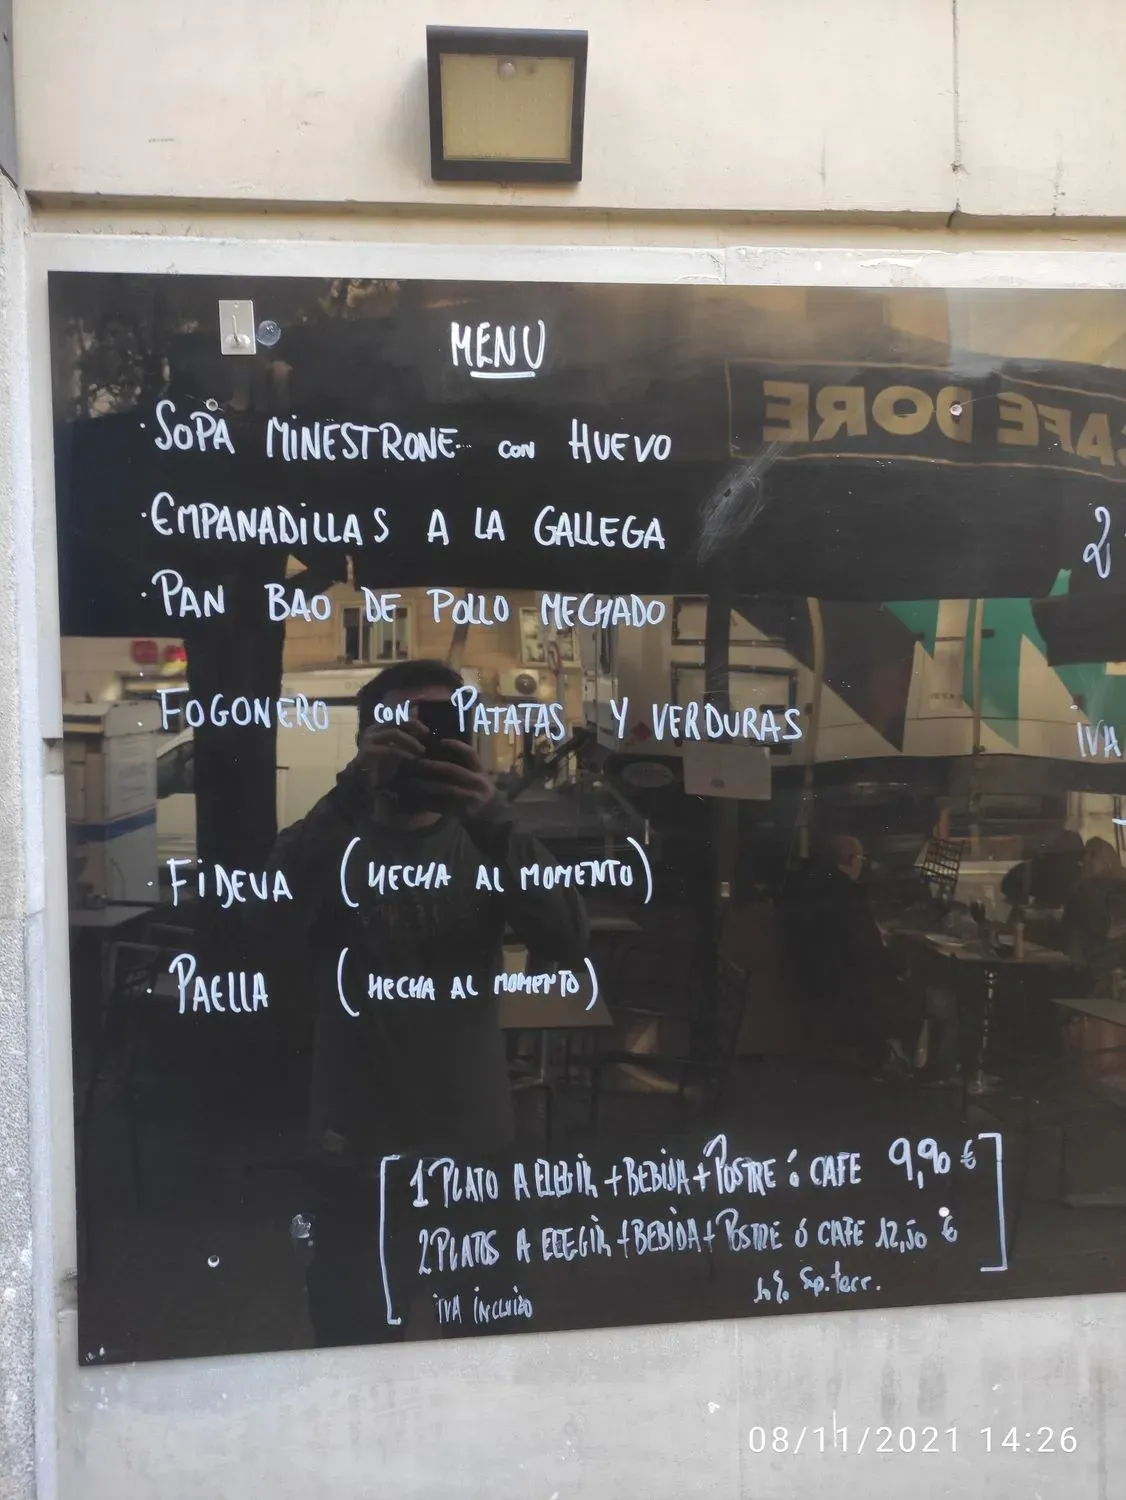 MENU
· SOPA MINESTRONE con HUEVO
· EMPANADILLAS A LA GALLEGA
2
· PAN BAO DE POLLO MECHADO
· FOGONERO con PATATAS Y VERDURAS
IVA
· FIDEVA (HECHA AL MOMENTO)
· PAELLA (HECHA AL MOMENTO)
1 PLATO A ELEGIR + BEBIDA + POSTRE ó CAFE 9,90 €
2 PLATOS A ELEGIR + BEBIDA + POSTRE ó CAFE 12,50 €
IVA INCLUIDO
Sp. terr.
CAFE DORE
08/11/2021 14:26